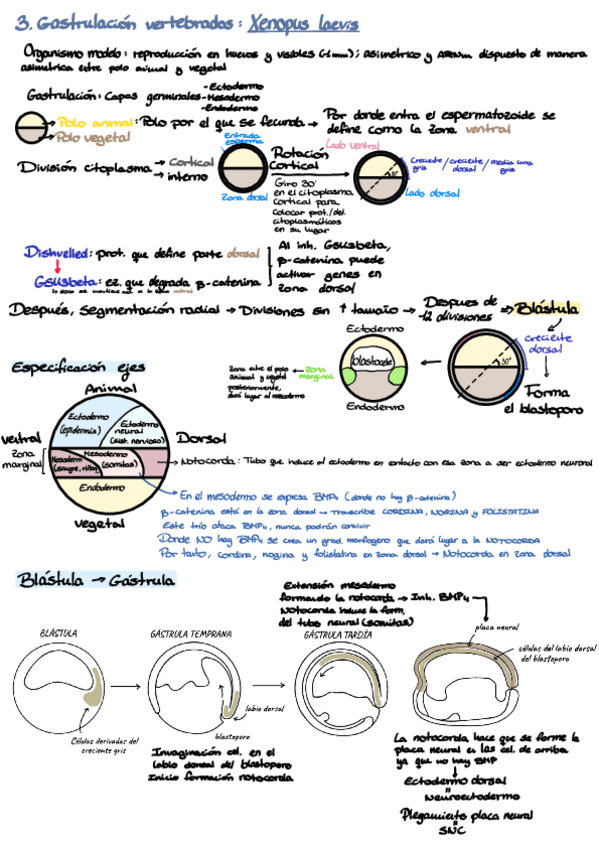 3. Gastrulación vertebrados: Xenopus laevis
Organismo modelo: reproducción en huevos y visibles (~1mm); asimétrico y ARNm dispuesto de manera
asimétrica entre polo animal y vegetal
Gastrulación: Capas germinales
- Ectodermo
- Mesodermo
- Endodermo
Polo animal: Polo por el que se fecunda → Por donde entra el espermatozoide se
define como la zona ventral
Polo vegetal
División citoplasma → Cortical
→ interno
Entrada
esperma
Zona dorsal
Rotación
Cortical
Giro 30°
en el citoplasma
cortical para
colocar prot./del.
citoplasmáticos
en su lugar
Lado ventral
30°
Creciente / creciente / media luna
gris / dorsal / gris
Lado dorsal
Dishvelled: prot. que define parte dorsal
Gsusbeta: ez. que degrada β-catenina
Al inh. Gsusbeta,
β-catenina puede
activar genes en
zona dorsal
Después, segmentación radial → Divisiones sin ↑ tamaño → Despues de
~12 divisiones ⇒ Blástula
Ectodermo
blastocele
Endodermo
Zona marginal
Zona entre el polo
animal y vegetal
posteriormente,
dará lugar al mesodermo
30°
creciente
dorsal
Forma
el blastoporo
Especificación ejes
Animal
Ectodermo
(epidermis)
Ectodermo
neural
(sist. nervioso)
ventral
Dorsal
Zona
marginal
Mesoderm
(sangre, riñón)
Mesodermo
(somitas)
Endodermo
vegetal
Notocorda: Tubo que induce al ectodermo en contacto con esa zona a ser ectodermo neuronal
En el mesodermo se expresa BMP4 (donde no hay β-catenina)
β-catenina está en la zona dorsal → Transcribe CORDINA, NOGINA y FOLISTATINA
Este trío ataca BMP4, nunca podrán convivir
Donde NO hay BMP4 se crea un grad. morfogeno que dará lugar a la NOTOCORDA
Por tanto, cordina, nogina y folistatina en zona dorsal → Notocorda en zona dorsal
Blástula → Gástrula
Extensión mesodermo
formando la notocorda → Inh. BMP4
Notocorda induce la form.
del tubo neural (somitas)
BLÁSTULA
GÁSTRULA TEMPRANA
GÁSTRULA TARDÍA
placa neural
células del labio dorsal
del blastoporo
labio dorsal
blastoporo
Células derivadas del
creciente gris
Invaginación cel. en el
labio dorsal del blastoporo
Inicio formación notocorda
La notocorda hace que se forme la
placa neural en las cel. de arriba
ya que no hay BMP
Ectodermo dorsal
=
Neuroectodermo
Plegamiento placa neural
=
SNC